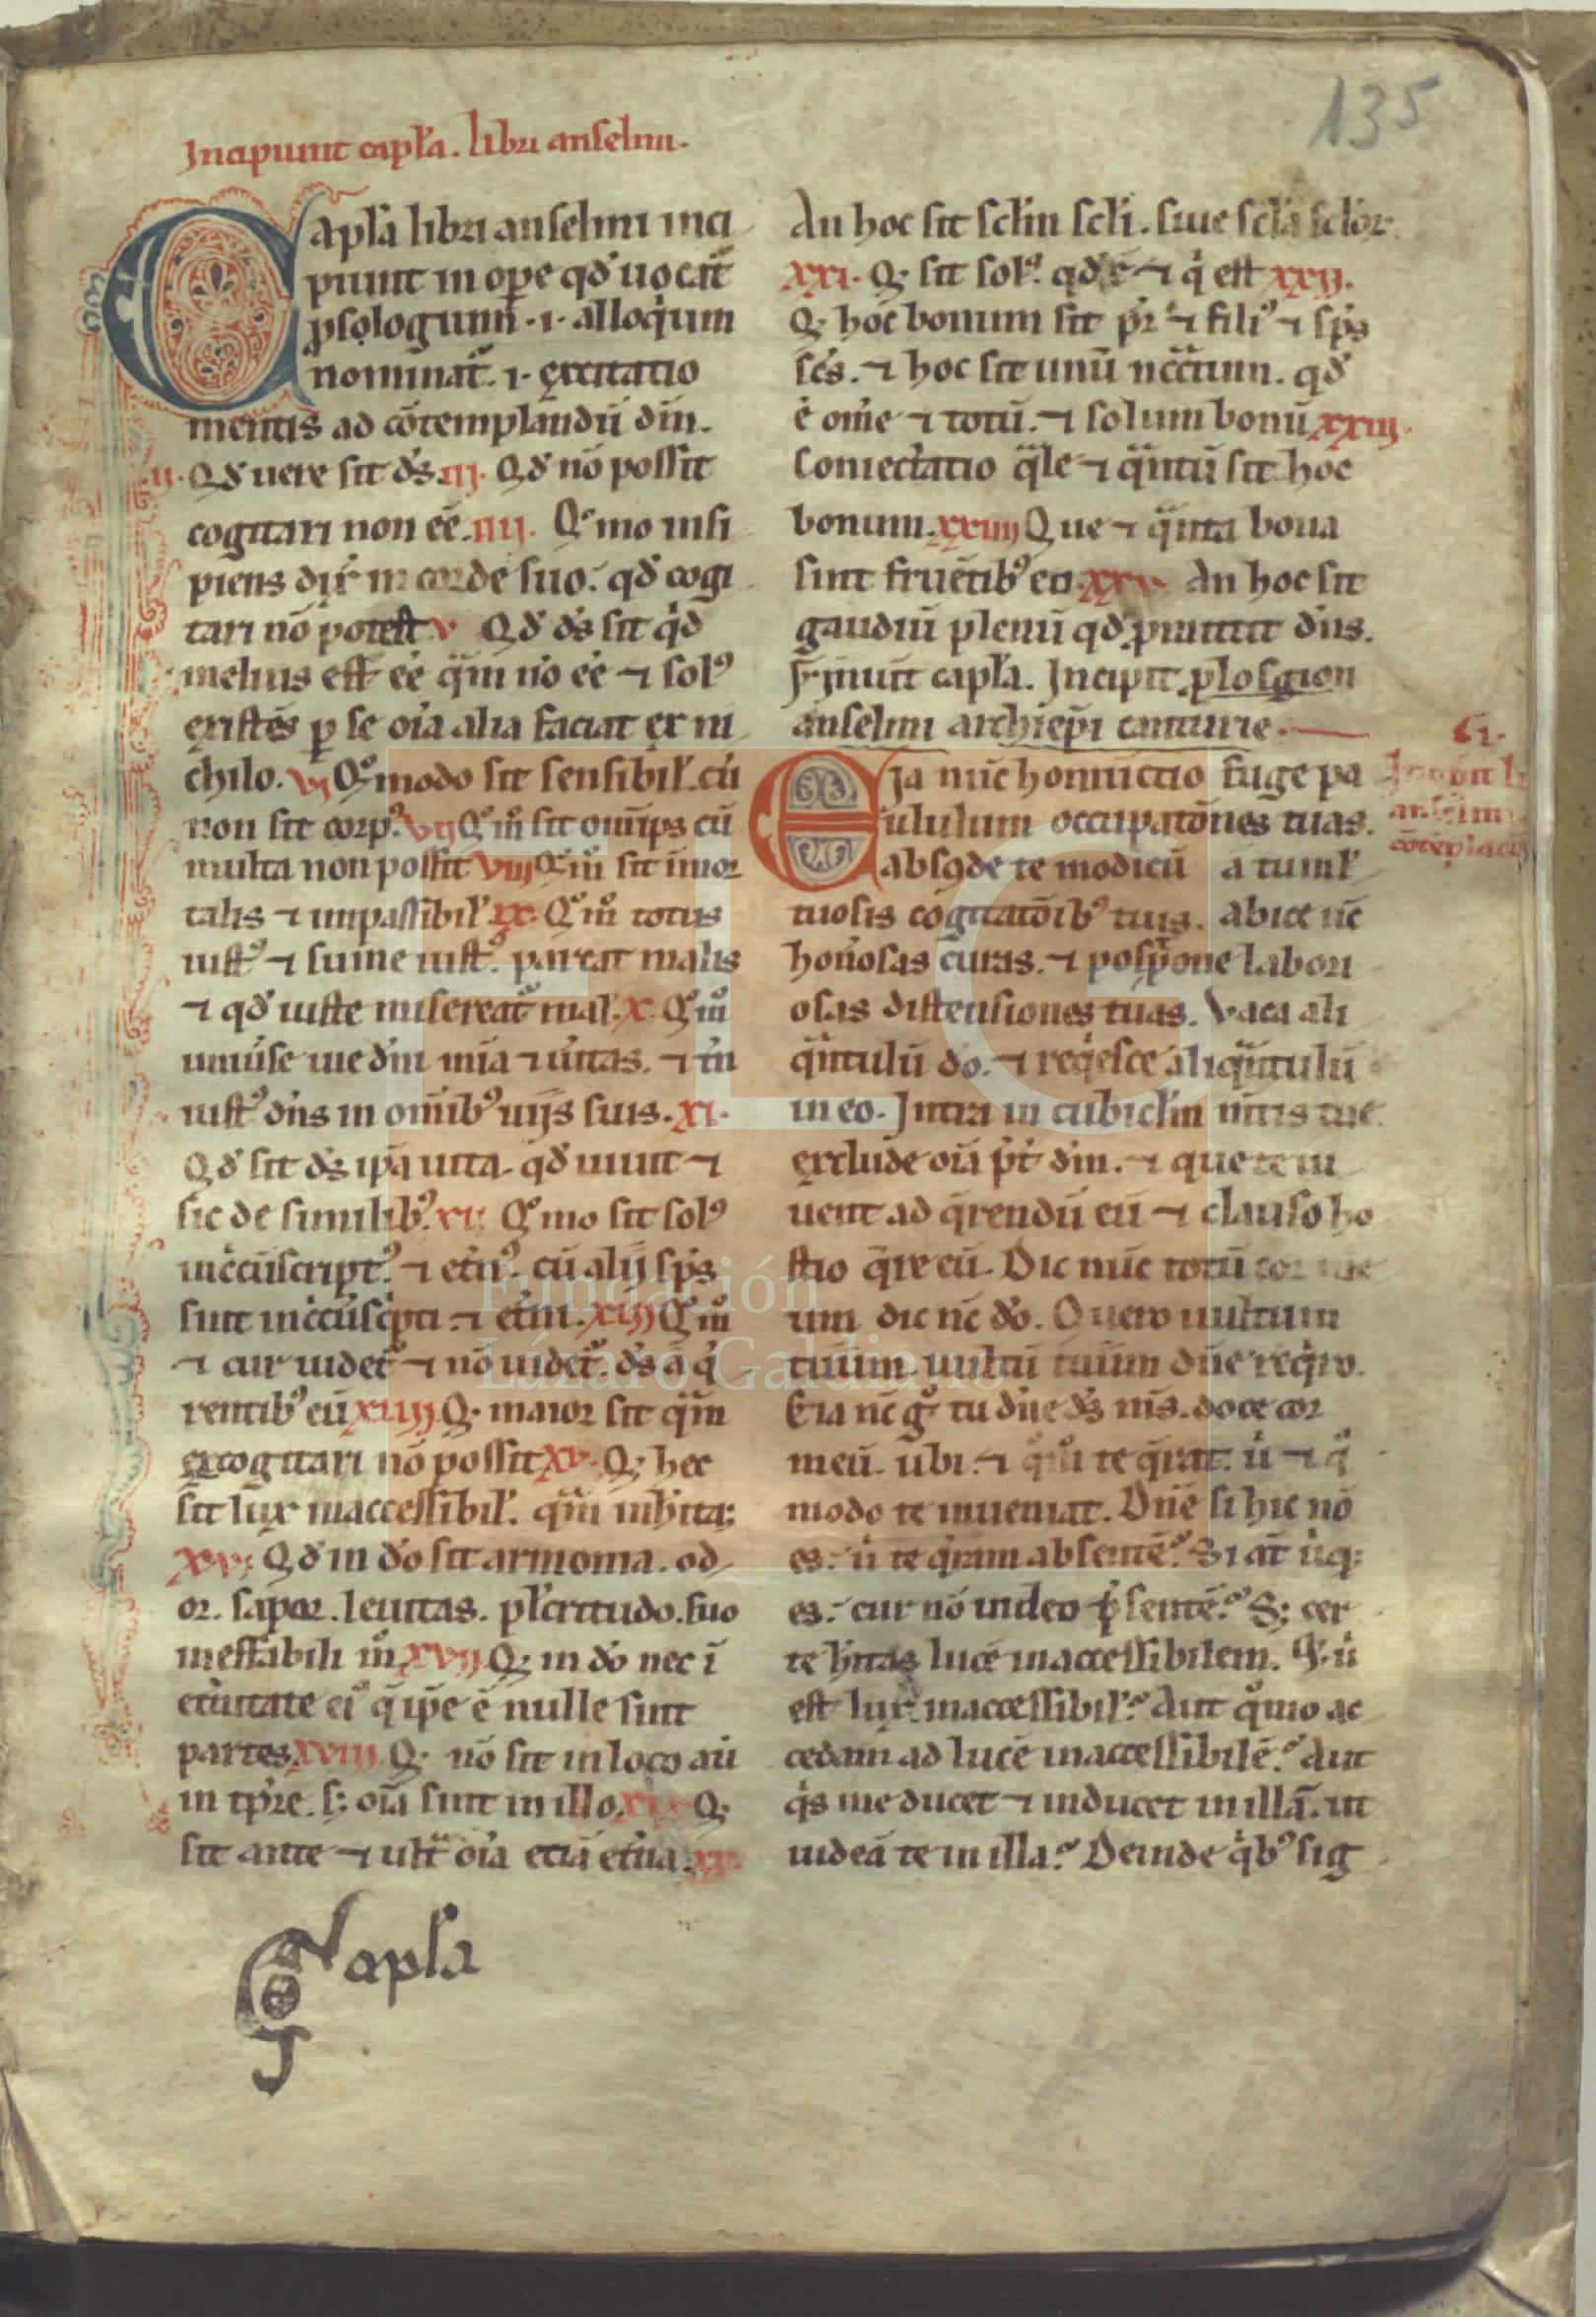 135
Incipiunt capl'a. libri anselmi.
Capl'a libri anselmi inci
piunt in ope qd' uocat̄
psologium .i. alloq'um
nominat̄. i. excitatio
mentis ad cōtemplandū dm̄.
ii. Qd' uere sit ds̄. iii. Qd' nō possit
cogitari non eē. iiii. Qº mo insi
piens dix' in corde suo. qd' cogi
tari nō potest v Qd' ds̄ sit q'd
melius est eē qm̄ nō eē ⁊ solꝰ
existēs p se oīa alia faciat ex ni
chilo. vi Qº modo sit sensibil'. cū
non sit corpꝰ. vii Qº mº sit omīps cū
multa non possit viii Qº mº sit īmor
talis ⁊ impassibil' ix. Qº mº totus
iustꝰ ⁊ sūme iustꝰ. parcat malis
⁊ qd' iuste misereat̄ mal'. x. Qº mº
uniūse uie dm̄ mīa ⁊ ūitas. ⁊ tn̄
iustꝰ dn̄s in omībꝰ uijs suis. xi.
Qd' sit ds̄ ipā uita. qd' uiuit ⁊
sic de similibꝰ. xii Qº mo sit solꝰ
incc̄ūscriptꝰ. ⁊ et̄nꝰ. cū alij sps̄
sint incc̄ūsc'pti ⁊ et̄ni. xiii Qº mº
⁊ cur uidet̄ ⁊ nō uidet̄. ds̄ a q̄
rentibꝰ eū xiiii. Q; maior sit qm̄
excogitari nō possit xv. Q; hec
sit lux inaccessibil'. qm̄ inhītat
xvi; Qd' in dº sit armonia. od
or. sapor. leuitas. pl'critudo. suo
ineffabili mº xvii Q; in dº nec ī
et̄nitate eiꝰ q̄ ipe ē nulle sint
partes. xviii Q; nō sit in loco aū
in tpr̄e. s; oīa sunt in illo. xix Q;
sit ante ⁊ ult̄ oīa etiā et̄na. xx.
Capl'a
An hoc sit scl'm scl'i. siue scl'a scl'or
xxi. Q; sit solꝰ. qd' ē ⁊ q' est xxii.
Q; hoc bonum sit pr̄ ⁊ filiꝰ ⁊ sps̄
scs̄. ⁊ hoc sit unū nc̄c̄ium. qd'
ē om̄e ⁊ totū. ⁊ solum bonū xxiii.
Coniectatio q̄le ⁊ q̄ntū sit hoc
bonum. xxiiii Que ⁊ q̄nta bona
sint fruētibꝰ eo. xxv. An hoc sit
gaudiū plenū qd' pmittit dn̄s.
Finiunt capl'a. Incipit plosgion
anselmi archiepi canturie.
Eja nūc homūctio fuge pa
ululum occupatōnes tuas.
absq̄de te modicū a tuml'
tuosis cogitatōibꝰ tuis. abice nc̄
honosas curas. ⁊ pospone labori
osas distensiones tuas. Vaca ali
q̄ntulū dº. ⁊ req'esce aliq̄ntulū
in eo. Intra in cubicl'm mn̄tis tue.
exclude oīa pt̄ dm̄. ⁊ que te iu
uent ad q̄rendū eū ⁊ clauso ho
stio q̄re eū. Dic nūc totū cor me
um dic nc̄ dº. Quero uultum
tuum uultū tuum dn̄e req'ro.
Eia nc̄ gº tu dn̄e ds̄ ms̄. doce cor
meū. ubi ⁊ qº mº te q̄rat. u' ⁊ qº
modo te inueniat. Dn̄e si hic nō
es. u' te q̄ram absentē? Si at̄ u'q;
es. cur nō uideo p̄sentē? S; cer
te hītas lucē inaccessibilem. ⁊ u'
est lux inaccessibil'? Aut qº mo ac
cedam ad lucē inaccessibilē? Aut
q's me ducet ⁊ inducet in illā. ut
uideā te in illa? Deinde q'bꝰ sig
C. i.
Incipit li
anselmi
cōteplacō
Fundación
Lázaro Galdiano